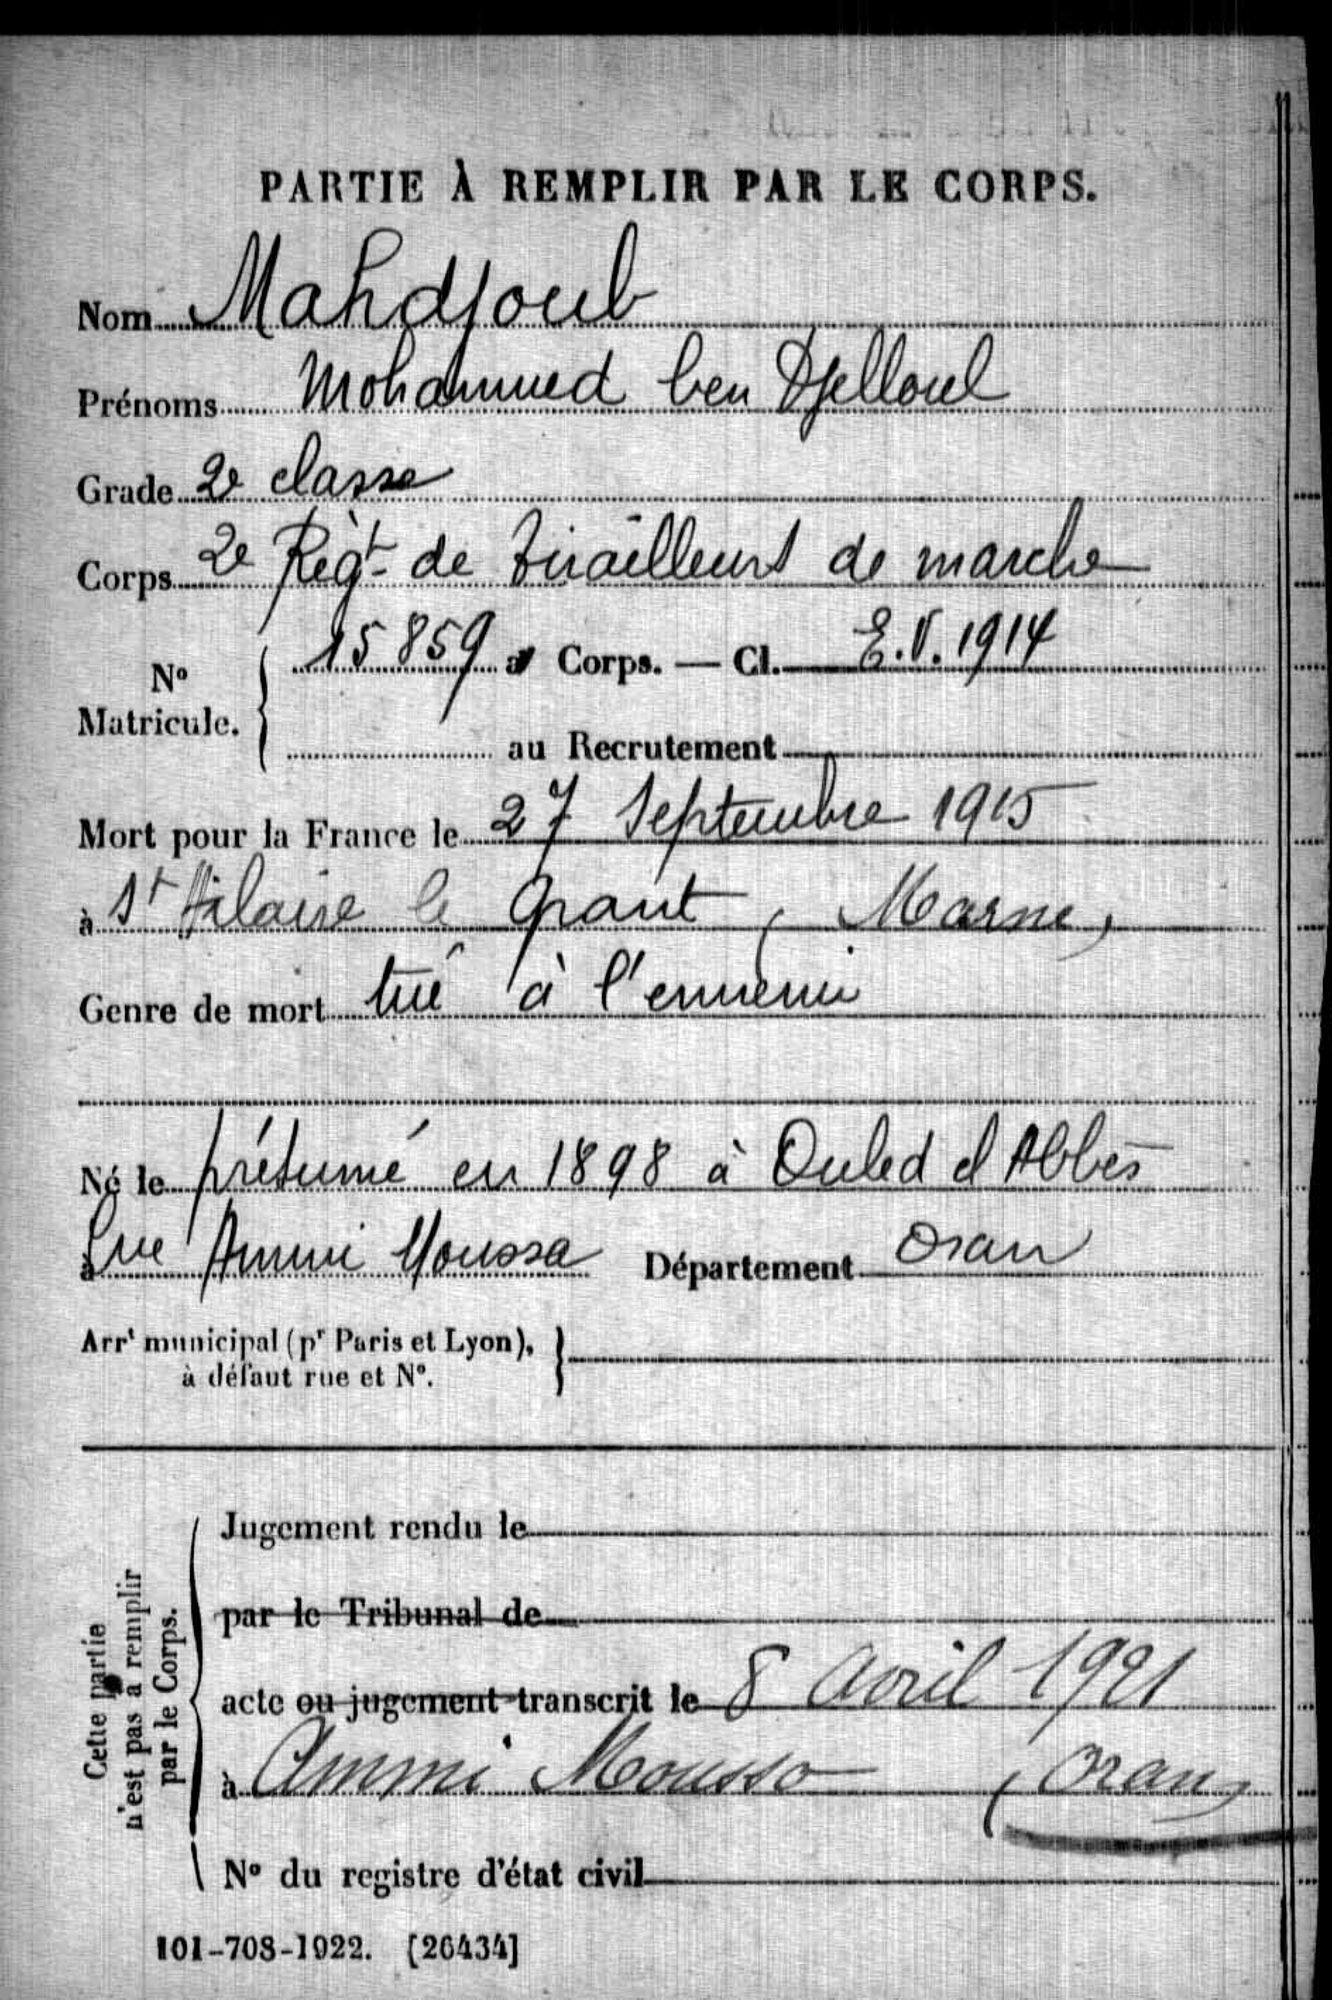 PARTIE À REMPLIR PAR LE CORPS.
Nom Mahdjoub
Prénoms Mohammed ben Djelloul
Grade 2e classe
Corps 2e Règt de tirailleurs de marche
No Matricule. { 15859 au Corps. — Cl. E.V. 1914
au Recrutement
Mort pour la France le 27 Septembre 1915
à St Hilaire le Grant (Marne)
Genre de mort tué à l'ennemi
Né le présumé en 1898 à Ouled el Abbès
à Ammi Moussa Département Oran
Arrt municipal (pr Paris et Lyon), à défaut rue et No.
Cette partie n'est pas à remplir par le Corps.
Jugement rendu le
par le Tribunal de
acte ou jugement transcrit le 8 avril 1921
à Ammi Moussa (Oran)
No du registre d'état civil
101-708-1922. [26434]